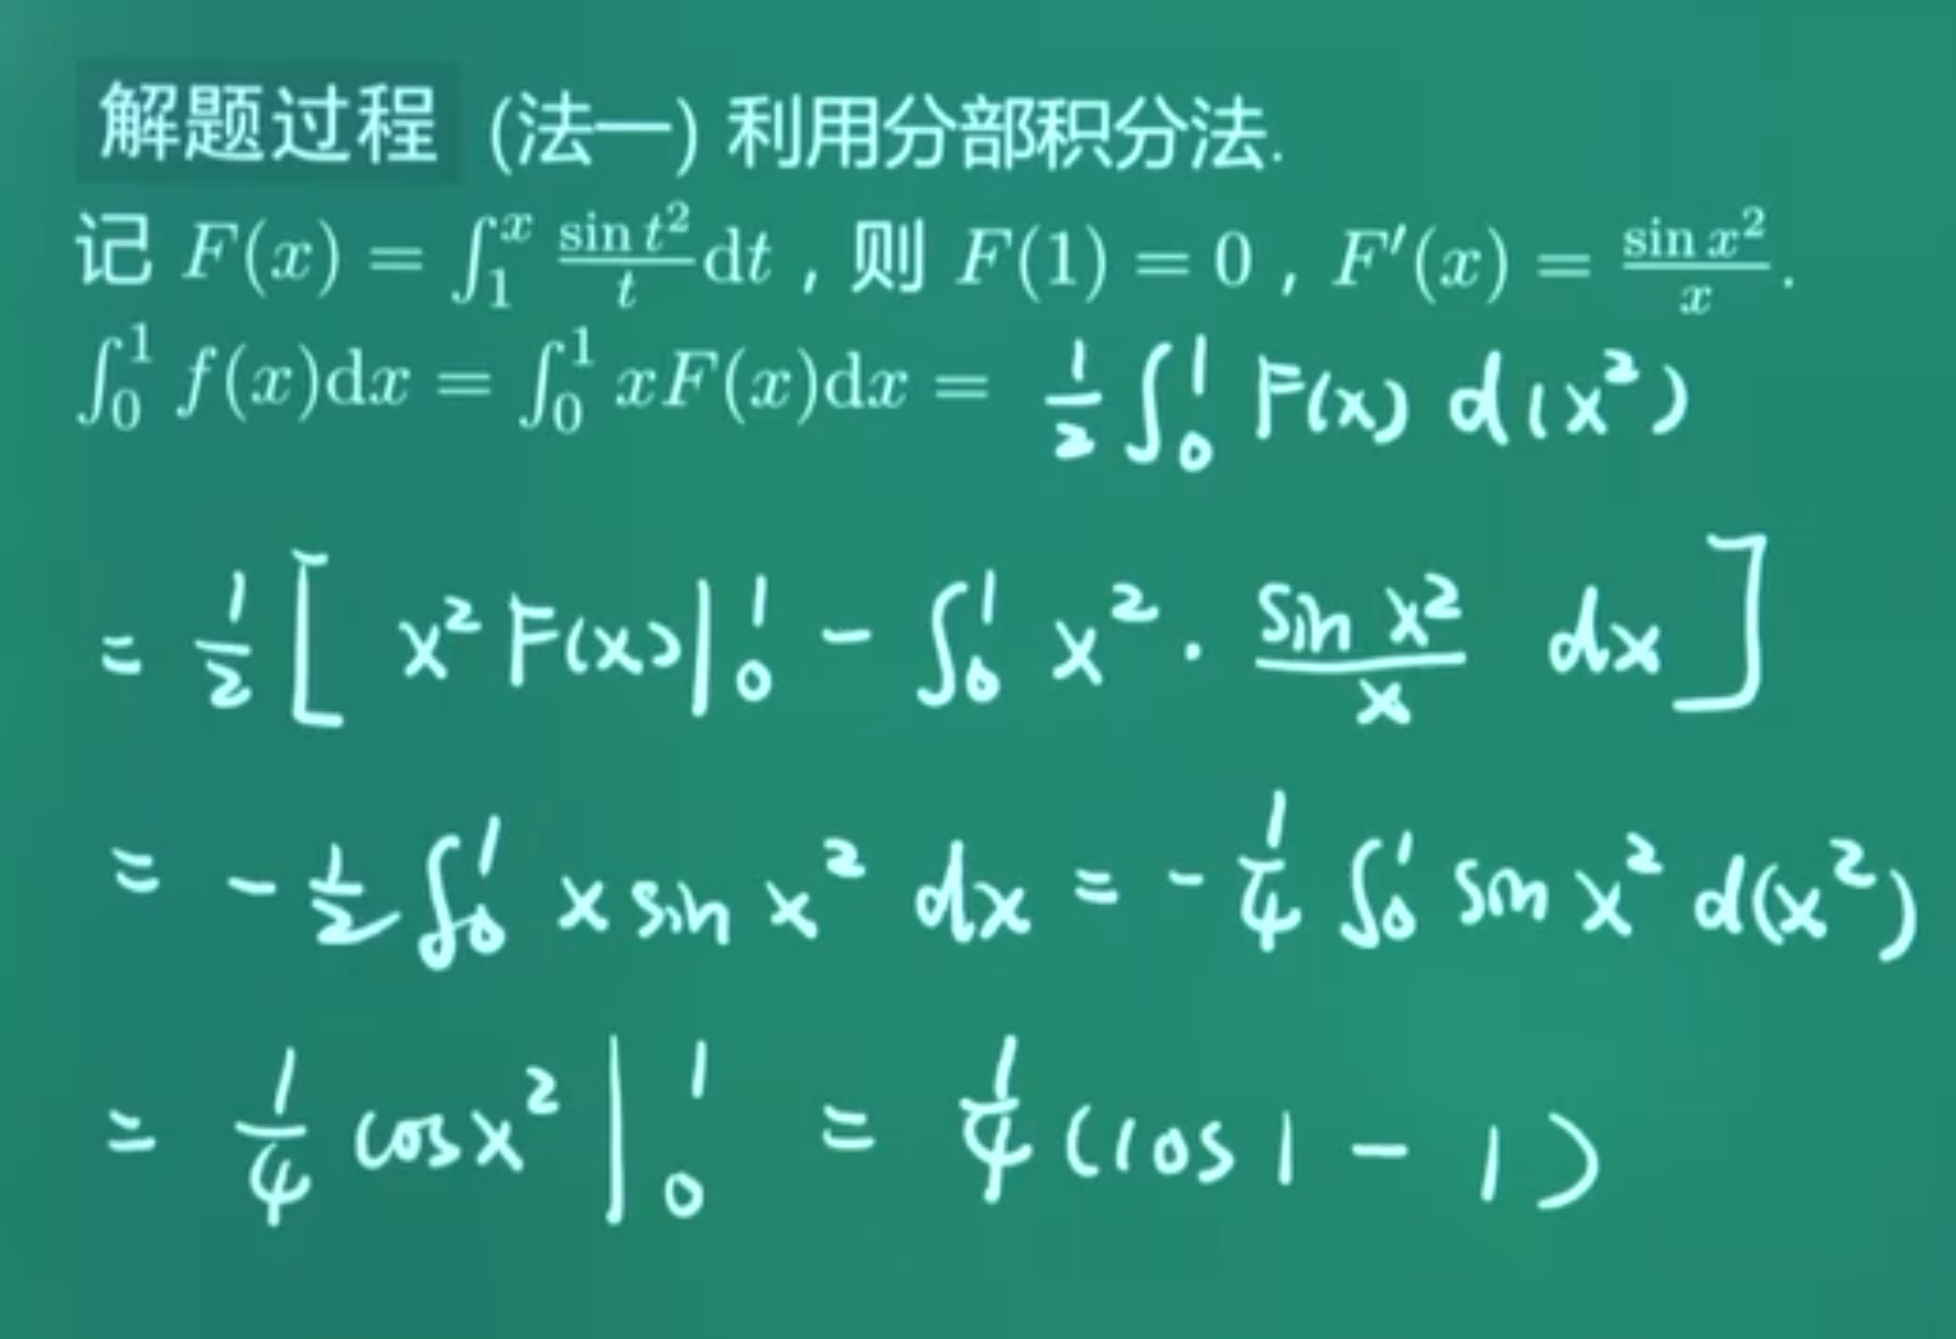 解题过程 (法一) 利用分部积分法.
记 F(x) = ∫₁ˣ \frac{sin t²}{t} dt , 则 F(1) = 0 , F′(x) = \frac{sin x²}{x} .
∫₀¹ f(x)dx = ∫₀¹ xF(x)dx = \frac{1}{2} ∫₀¹ F(x) d(x²)
= \frac{1}{2} [ x² F(x)|₀¹ − ∫₀¹ x² · \frac{sin x²}{x} dx ]
= − \frac{1}{2} ∫₀¹ x sin x² dx = − \frac{1}{4} ∫₀¹ sin x² d(x²)
= \frac{1}{4} cos x² |₀¹ = \frac{1}{4} (cos 1 − 1)